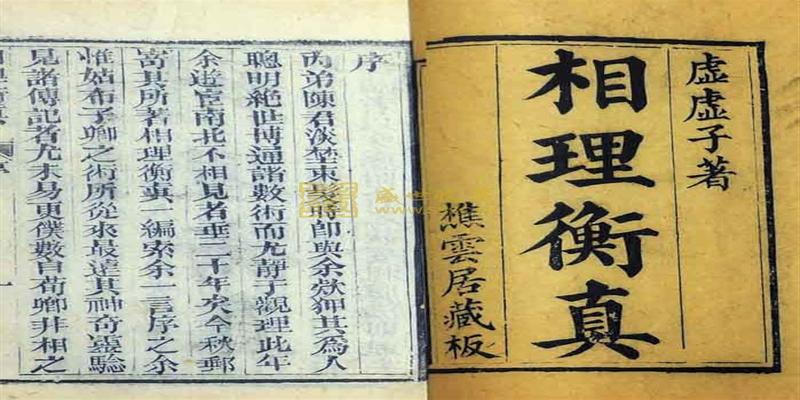 虛虛子著
相理衡真
樵雲居藏板
序
內弟陳君淡埜束髮時即與余款狎其為人
聰明絕世博通諸數術而尤靜于觀理此年
余遊宦南北不相見者垂二十年矣今秋郵
寄其所著相理衡真一編索余一言序之余
惟姑布子卿之術所從來最遠其神奇靈驗
見諸傳記者尤未易更僕數自荀卿非相之
一